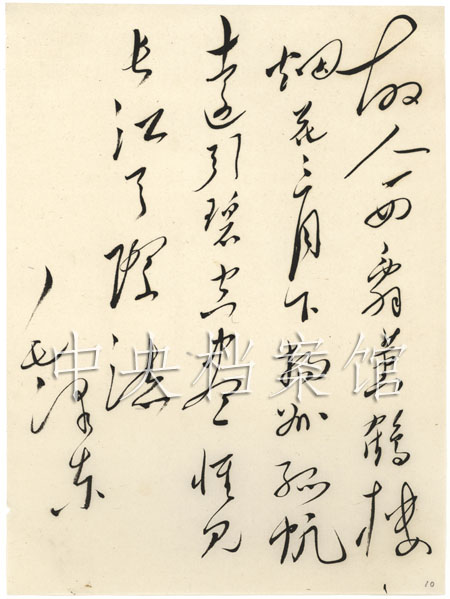 故人西辞黄鹤楼
烟花三月下扬州孤帆
远引碧空尽惟见
长江天际流
毛泽东
中央档案馆
10